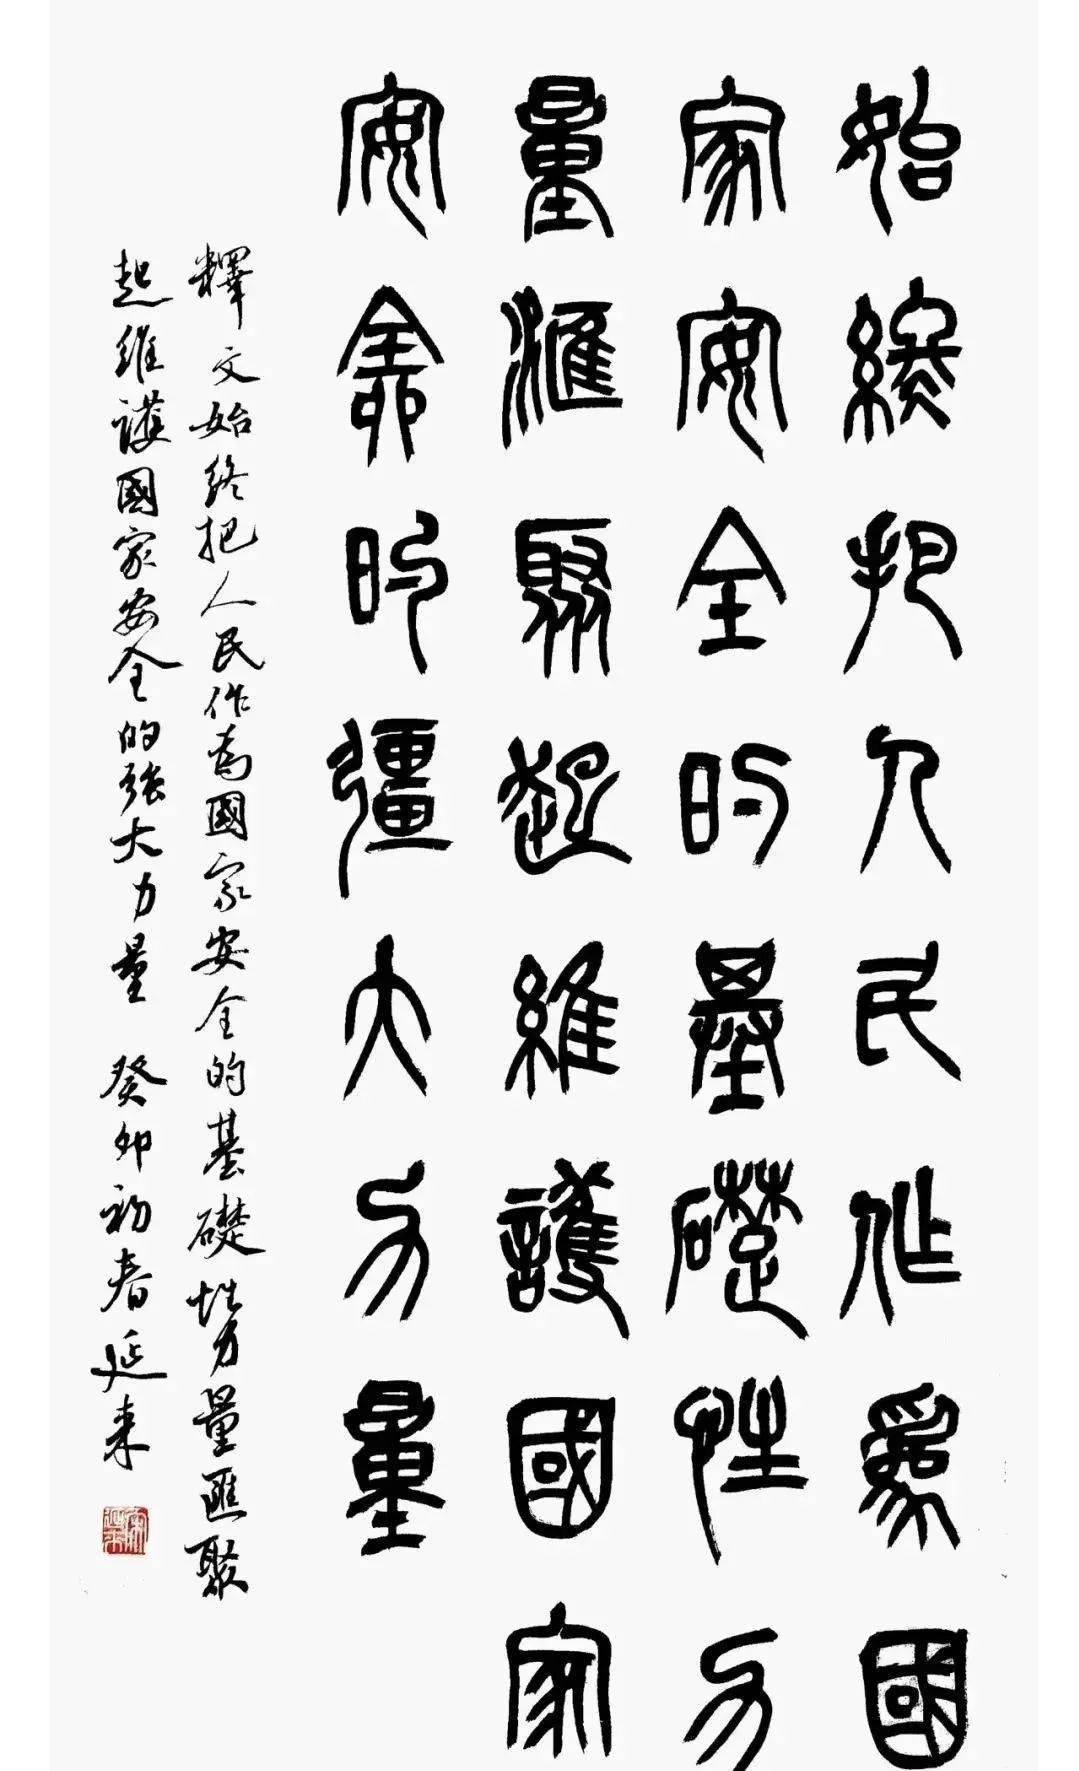 始終把人民作為國
家安全的基礎性力
量匯聚起維護國家
安全的彊大力量
釋文始終把人民作為國家安全的基礎性力量匯聚
起維護國家安全的強大力量 癸卯初春延來